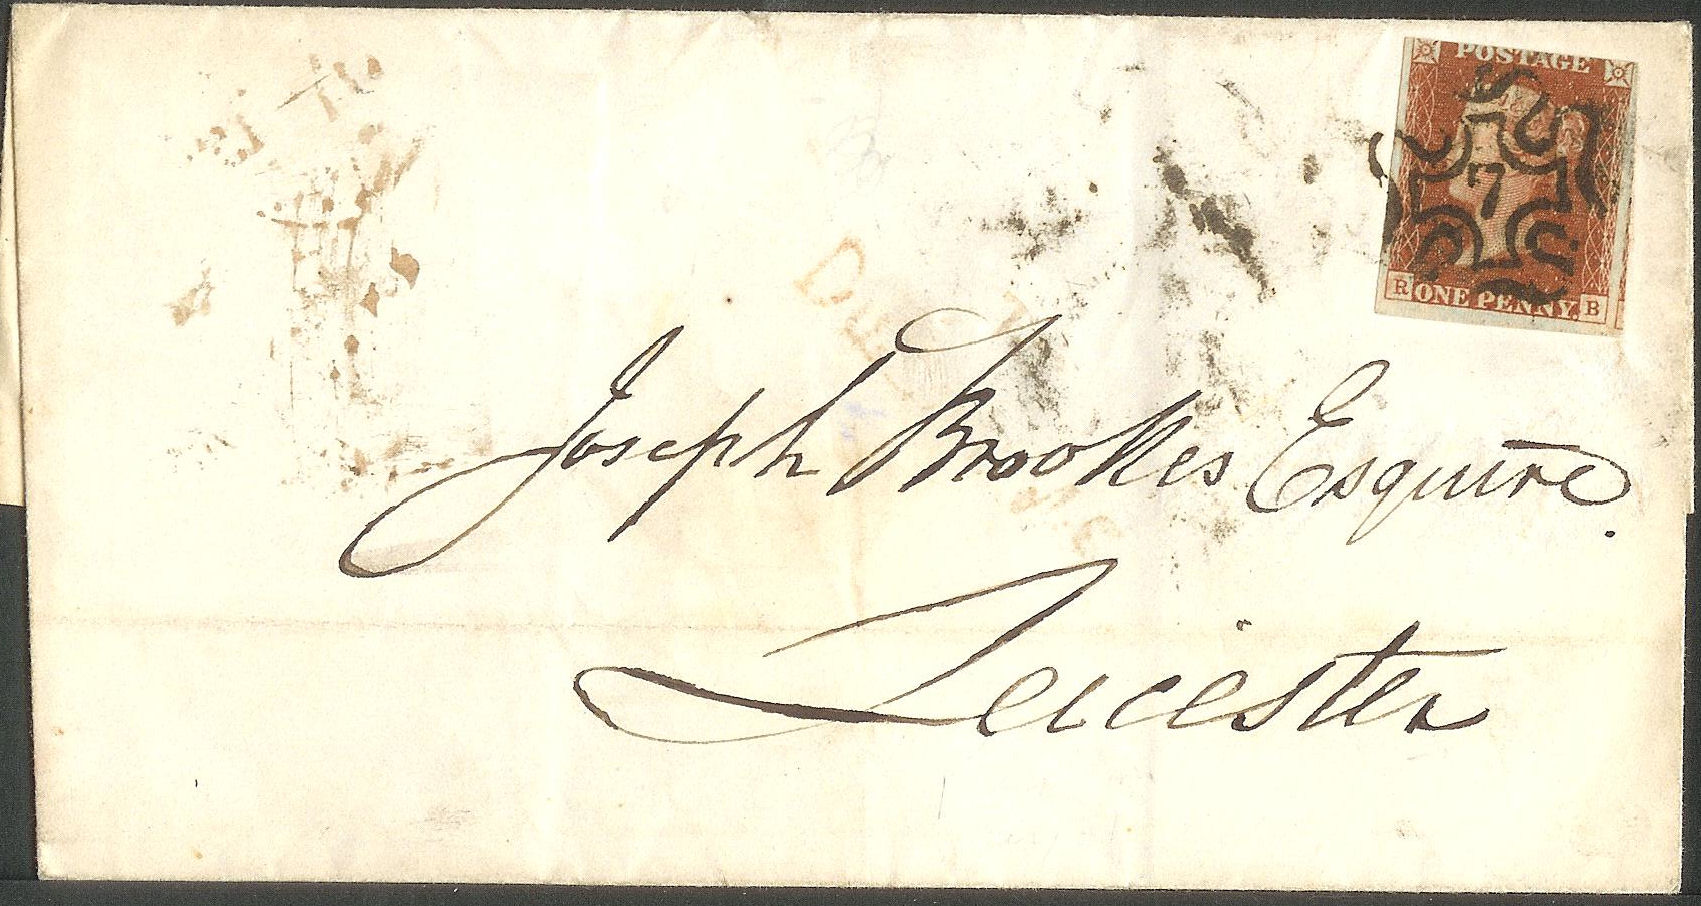 POSTAGE
7
R ONE PENNY. B
Joseph Brookes Esquire.
Leicester